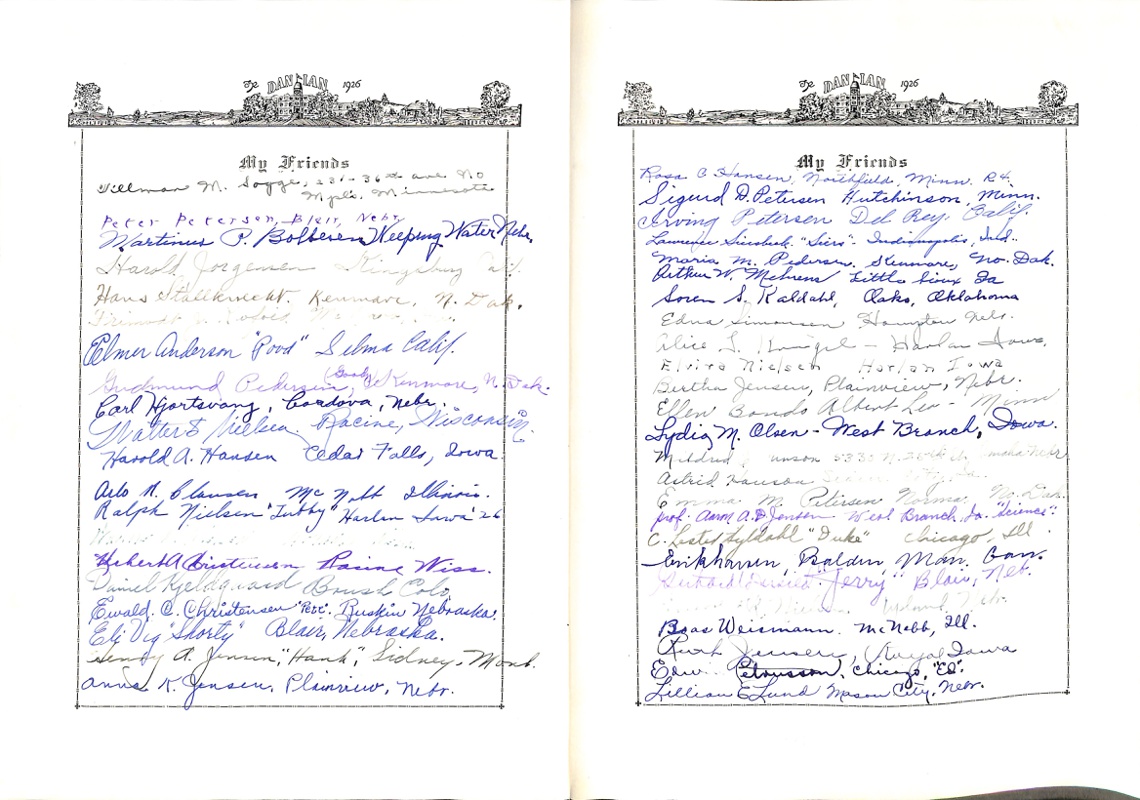 Ye DANNIAN 1926
My Friends
M. Sogge, 331- 36th ave No
Mpls. Minnesota
Peter Petersen, Blair, Nebr
Martinus P. Weeping Water Nebr.
Harold Jorgensen Kingsburg
Hans Stallknecht. Kenmare, N. Dak.
Elmer Anderson "Pood" Selma Calif.
Gudmund Pedersen, Kenmore, N. Dak.
Carl Hjortsvang, Cordova, Nebr.
Walter Nielsen Racine, Wisconsin.
Harold A. Hansen Cedar Falls, Iowa
Arlo N. Clausen Mc Nabb Illinois.
Ralph Nielsen "Tubby" Harlan Iowa '26
Herbert A Christensen Racine Wisc.
Daniel Kjeldgaard Brush Colo.
Ewald. C. Christensen Ruskin Nebraska.
Eli Vig "Shorty" Blair, Nebraska.
Henry A. Jensen, "Hank", Sidney, Mont.
Anna K. Jensen, Plainview, Nebr.
Ye DANNIAN 1926
My Friends
Rosa C Hansen, Northfield, Minn. R4.
Sigurd D. Petersen Hutchinson, Minn.
Irving Petersen Del Rey, Calif.
Laurence Indianapolis, Ind.
Maria M. Pedersen, Kenmare, No. Dak.
Arthur W. Mehrens Little Sioux Ia
Soren S. Kaldahl, Oaks, Oklahoma
Edna Simonsen Hampton Nebr.
Alice L. Harlan Iowa.
Elvira Nielsen Harlan Iowa
Bertha Jensen, Plainview, Nebr.
Ellen Bondo Albert Lea - Minn
Lydia M. Olsen - West Branch, Iowa.
Mildred Nebr
Astrid
Emma M. Petersen Norma, No. Dak.
Prof. Aaron A. Jensen West Branch, Ia. "Science".
C. Lester Lyldahl "Duke" Chicago, Ill
Erik Hansen, Baldur Man. Can.
"Jerry" Blair, Neb.
Boas Weismann. McNabb, Ill.
Ruth Jensen, Royal Iowa
Edw. Petersson, Chicago, "Ed".
Lillian E Lund Mason City, Nebr.